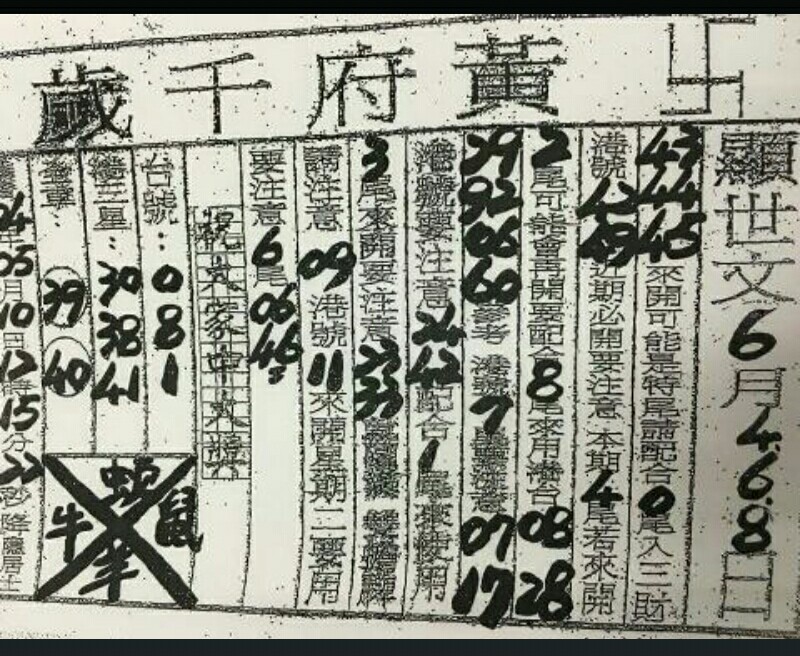 卐 黃府千歲
顯世文6月4.6.8日
43 44 45來開可能是特尾請配合0尾入三財
港號42 49近期必開要注意本期4尾若來開
2尾可能會再開要配合8尾來用港台08 28
29 92 06 60參考 港號7尾 07 17
港號要注意24 42配合1尾來使用
3尾來開要注意 33
請注意09港號11來開星期二要用
要注意6尾06 46
祝大家中大獎
台號：0 8 1
港三星：30 38 41
39 40
05月10日12時15分22秒降
蛇 牛 鼠 羊